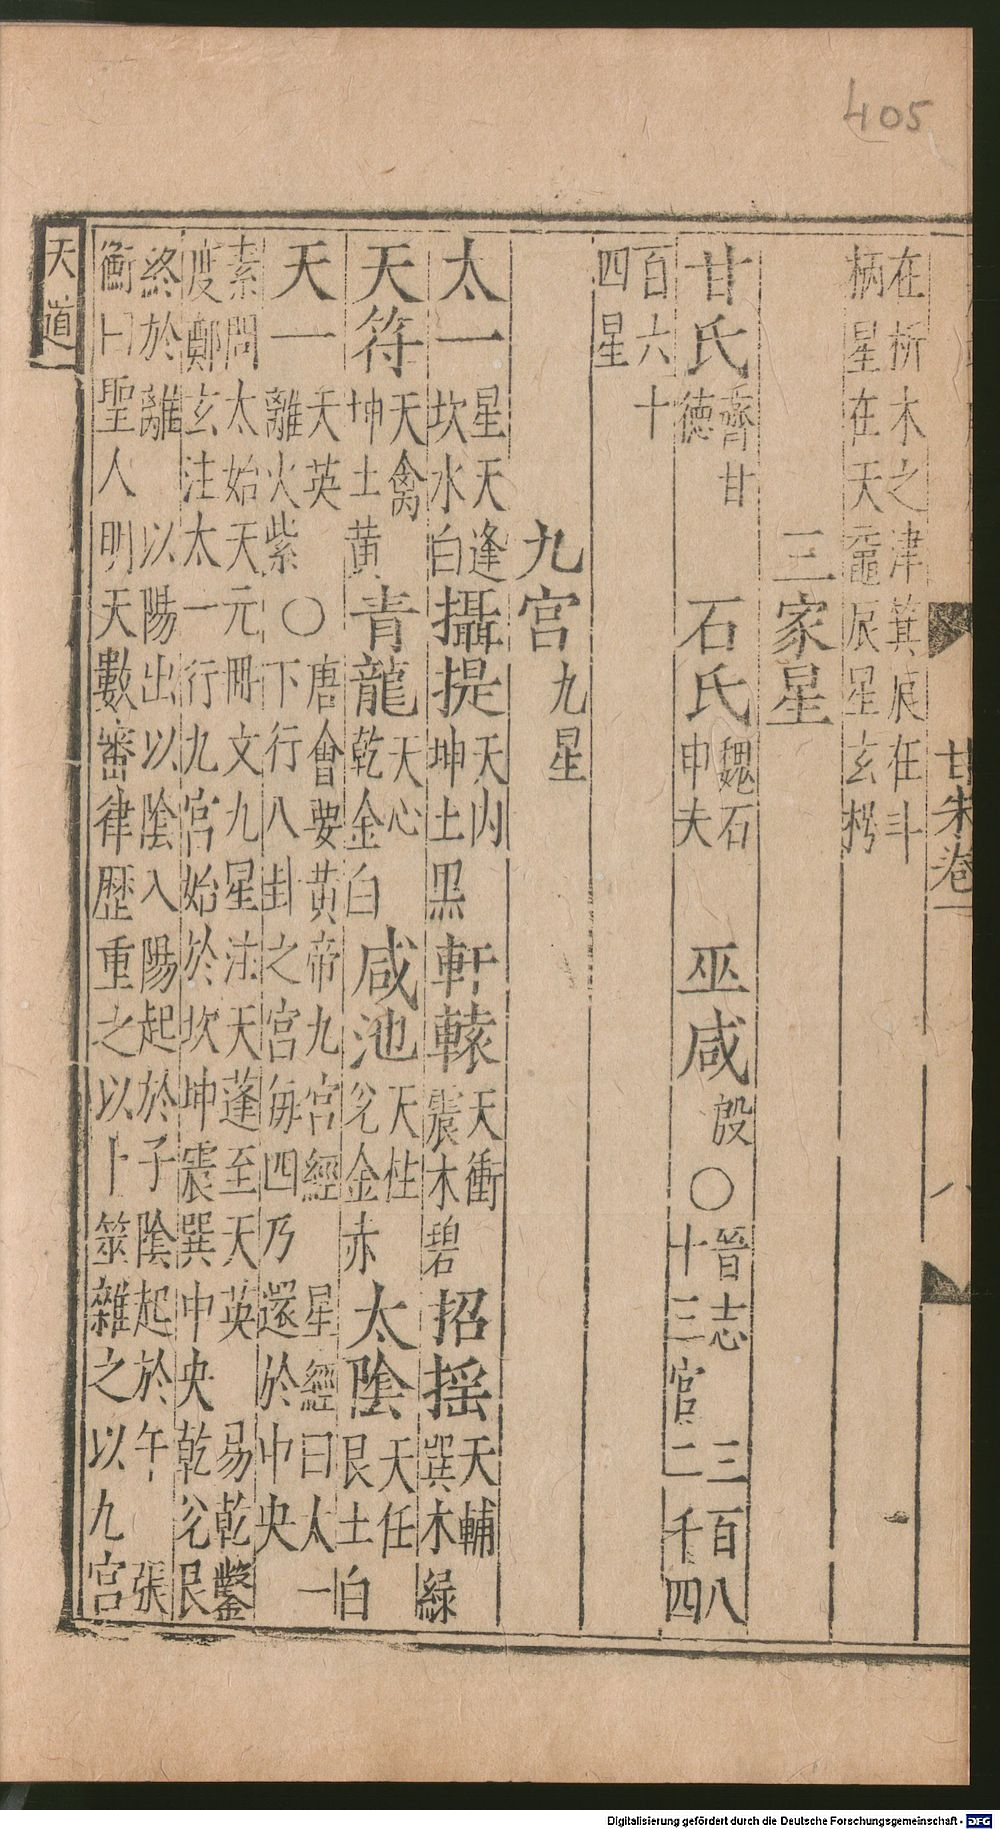 405
甘朱卷一
八
在析木之津箕辰在斗
柄星在天黿辰星玄枵
三家星
甘氏
齊甘
德
石氏
魏石
申夫
巫咸
殷
○
晉志 三百八
十三官二千四
百六十
四星
九宮九星
太一
星天逢
坎水白
攝提
天內
坤土黑
軒轅
天衝
震木碧
招搖
天輔
巽木綠
天符
天禽
坤土黃
青龍
天心
乾金白
咸池
天柱
兌金赤
太陰
天任
艮土白
天一
天英
離火紫
○
唐會要黃帝九宮經 星經曰太一
下行八卦之宮每四乃還於中央
素問太始天元冊文九星注天蓬至天英 易乾鑿
度鄭玄注太一行九宮始於坎坤震巽中央乾兌艮
終於離 以陽出以陰入陽起於子陰起於午 張
衡曰聖人明天數審律歷重之以卜筮雜之以九宮
天道
Digitalisierung gefördert durch die Deutsche Forschungsgemeinschaft - DFG